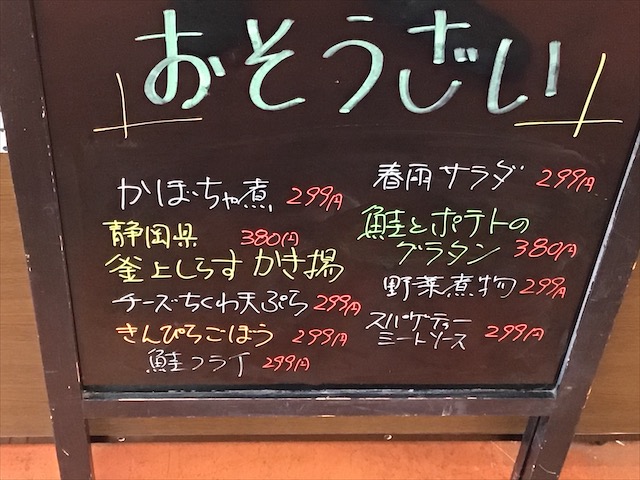 おそうざい
かぼちゃ煮 299円
静岡県 380円
釜上しらすかき揚
チーズちくわ天ぷら 299円
きんぴらごぼう 299円
鮭フライ 299円
春雨サラダ 299円
鮭とポテトの
グラタン 380円
野菜煮物 299円
スパゲティー
ミートソース 299円